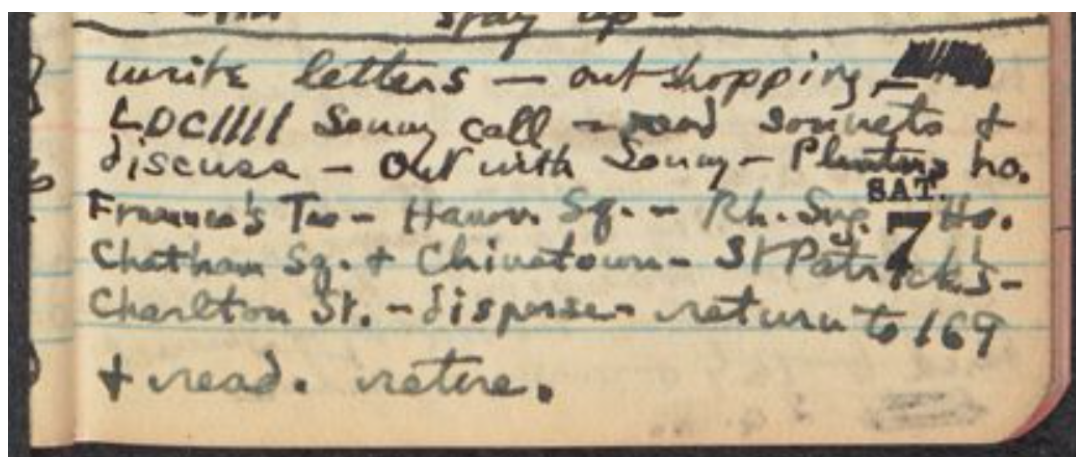 stay up—
write letters — out shopping —
LDC//// Sonny call — read sonnets &
discuss — out with Sonny — Planters ho.
SAT. 7
Fraunce's — Hanov. Sq. — Rh. Sug. Ho.
Chatham Sq. & Chinatown — St Patrick's —
Charlton St. — disperse — return to 169
& read. retire.